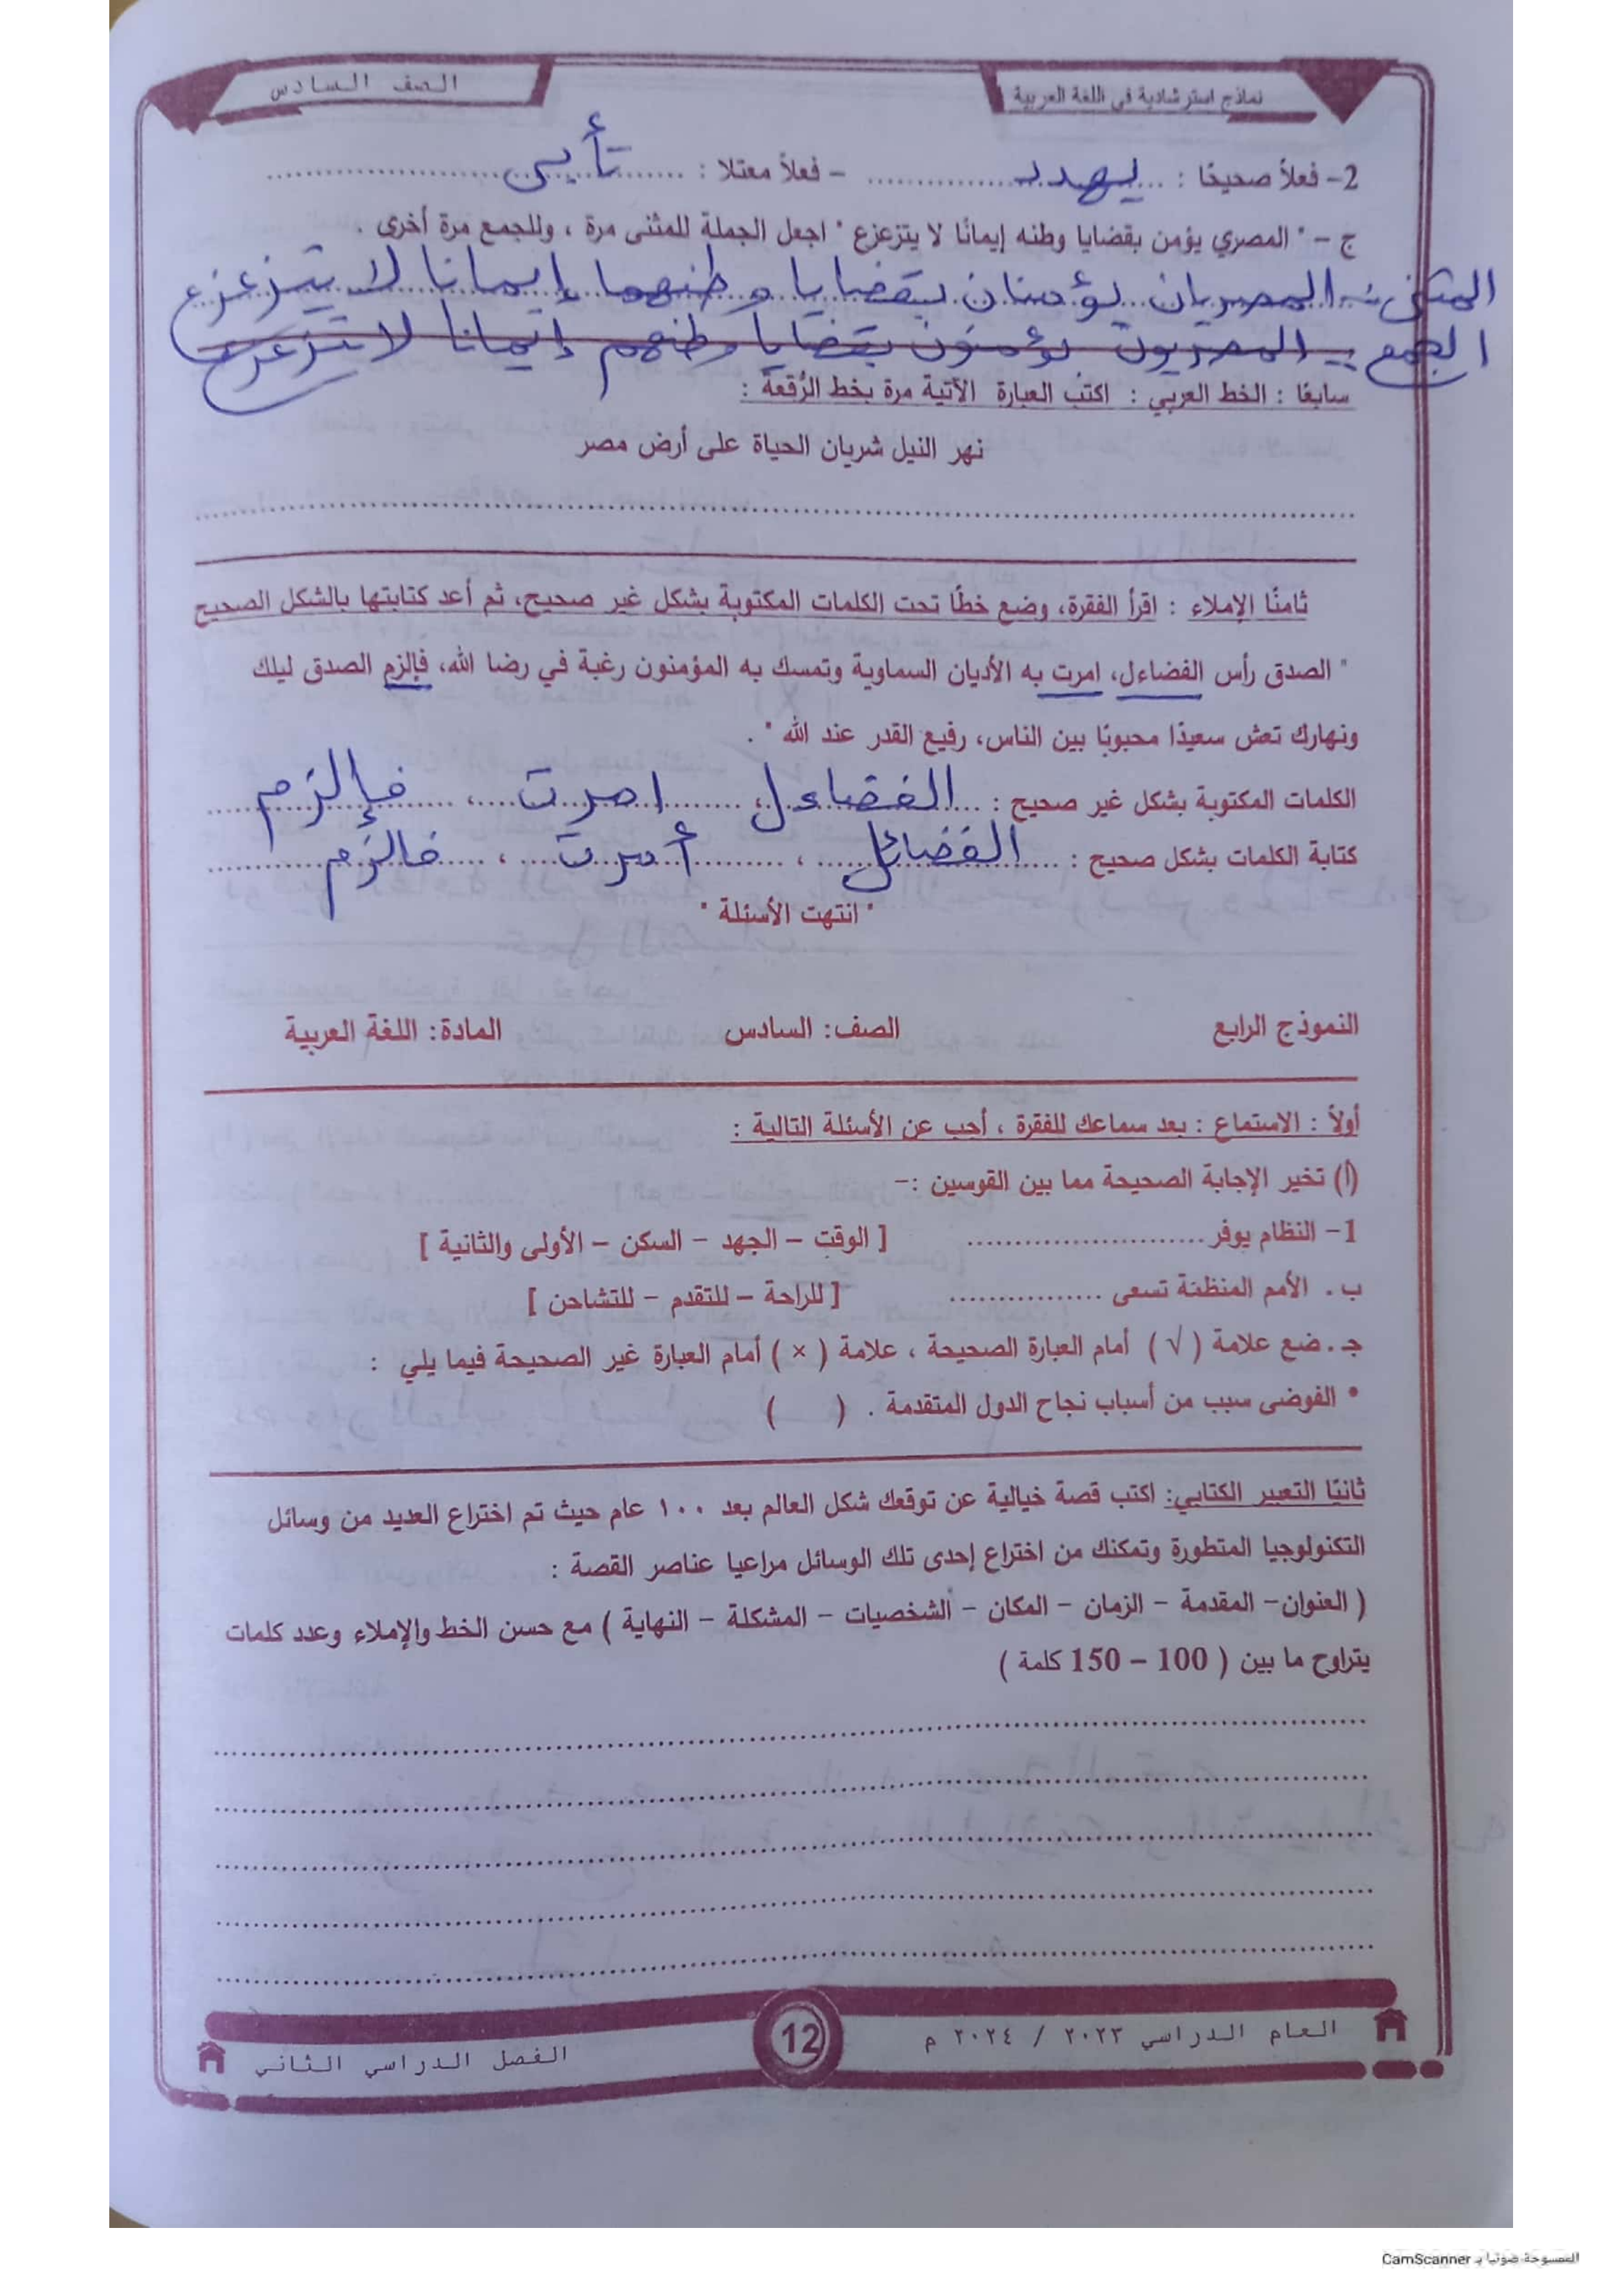 نماذج استرشادية في اللغة العربية
الصف السادس
2- فعلاً صحيحًا : يهدد - فعلاً معتلا : تأبى
ج - " المصري يؤمن بقضايا وطنه إيمانًا لا يتزعزع " اجعل الجملة للمثنى مرة ، وللجمع مرة أخرى .
المثنى :- المصريان يؤمنان بقضايا وطنهما إيمانا لا يتزعزع
الجمع :- المصريون يؤمنون بقضايا وطنهم إيمانا لا يتزعزع
سابعًا : الخط العربي : اكتب العبارة الآتية مرة بخط الرُّقعة :
نهر النيل شريان الحياة على أرض مصر
ثامنًا الإملاء : اقرأ الفقرة، وضع خطًا تحت الكلمات المكتوبة بشكل غير صحيح، ثم أعد كتابتها بالشكل الصحيح
" الصدق رأس الفضاءل، امرت به الأديان السماوية وتمسك به المؤمنون رغبة في رضا الله، فإلزم الصدق ليلك
ونهارك تعش سعيدًا محبوبًا بين الناس، رفيع القدر عند الله " .
الكلمات المكتوبة بشكل غير صحيح : الفضاءل ، امرت ، فإلزم
كتابة الكلمات بشكل صحيح : الفضائل ، أمرت ، فالزم
" انتهت الأسئلة "
النموذج الرابع الصف: السادس المادة: اللغة العربية
أولاً : الاستماع : بعد سماعك للفقرة ، أجب عن الأسئلة التالية :
(أ) تخير الإجابة الصحيحة مما بين القوسين :-
1- النظام يوفر ........................ [ الوقت - الجهد - السكن - الأولى والثانية ]
ب . الأمم المنظمة تسعى ................ [ للراحة - للتقدم - للتشاحن ]
جـ . ضع علامة ( √ ) أمام العبارة الصحيحة ، علامة ( × ) أمام العبارة غير الصحيحة فيما يلي :
• الفوضى سبب من أسباب نجاح الدول المتقدمة . ( )
ثانيًا التعبير الكتابي: اكتب قصة خيالية عن توقعك شكل العالم بعد ١٠٠ عام حيث تم اختراع العديد من وسائل
التكنولوجيا المتطورة وتمكنك من اختراع إحدى تلك الوسائل مراعيا عناصر القصة :
( العنوان- المقدمة - الزمان - المكان - الشخصيات - المشكلة - النهاية ) مع حسن الخط والإملاء وعدد كلمات
يتراوح ما بين ( 100 - 150 كلمة )
العام الدراسي ٢٠٢٣ / ٢٠٢٤ م
12
الفصل الدراسي الثاني
الممسوحة ضوئيا بـ CamScanner